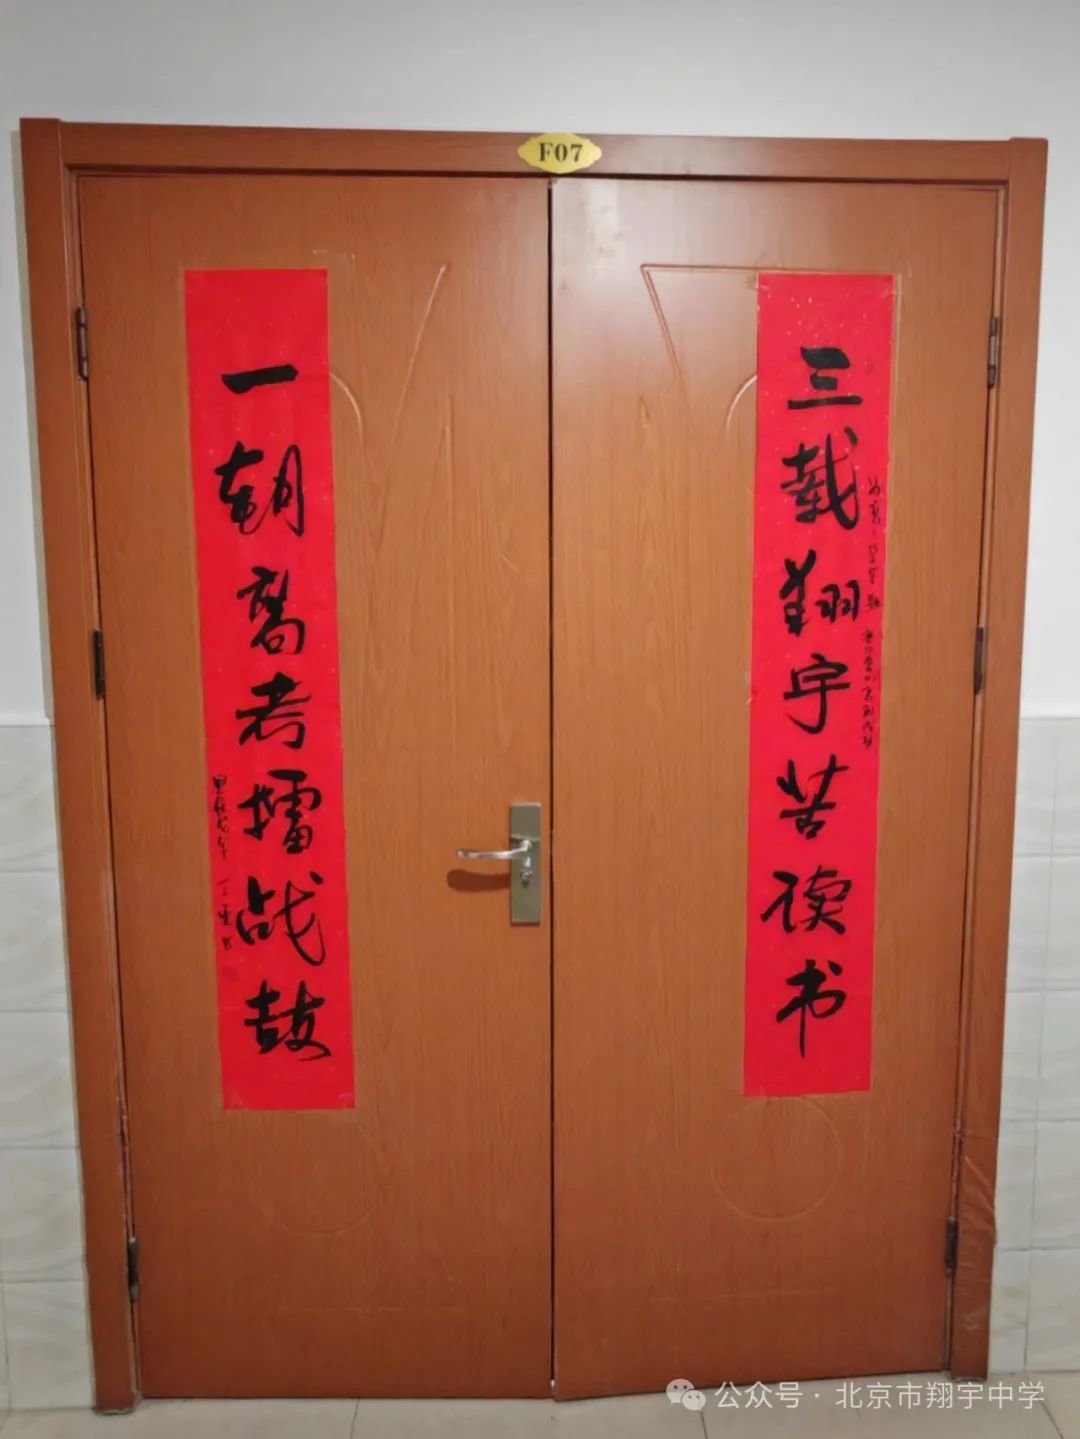 F07
三载翔宇苦读书
一朝高考擂战鼓
甲辰龙年
公众号·北京市翔宇中学